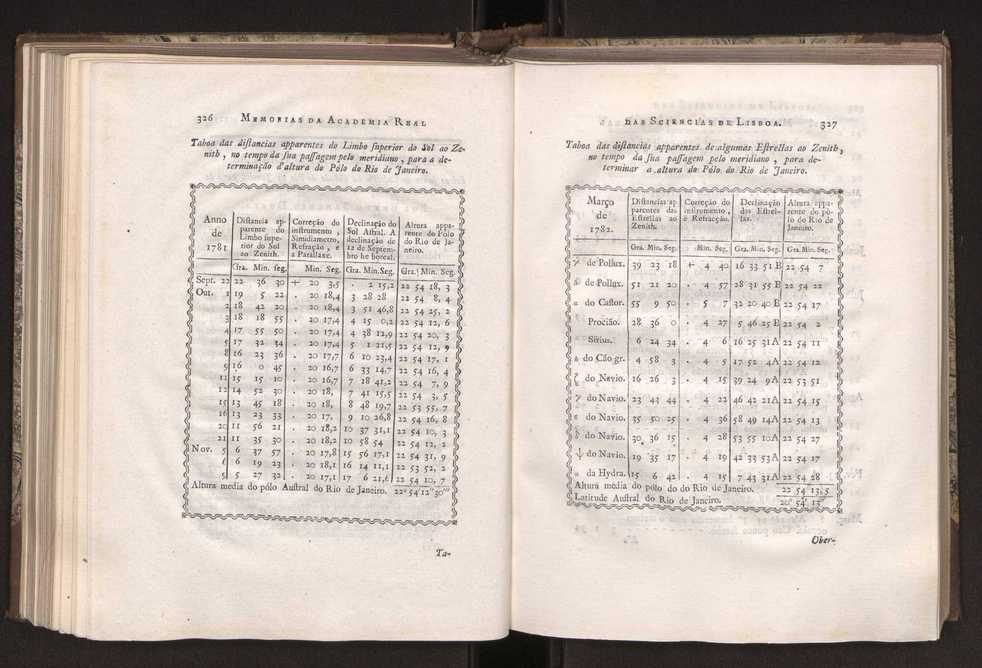 326 MEMORIAS DA ACADEMIA REAL
Taboa das distancias apparentes do Limbo superior do Sol ao Ze-
nith, no tempo da sua passagem pelo meridiano, para a de-
terminação d'altura do Pólo do Rio de Janeiro.
Anno de 1781 | Distancia ap-parente do Limbo supe-rior do Sol ao Zenith. | Correção do instrumento, Simidiametro, Refração, e a Parallaxe. | Declinação do Sol Astral. A declinação de 12 de Septem-bro he boreal. | Altura appa-rente do Pólo do Rio de Ja-neiro.
Gra. Min. seg. | Min. Seg. | Gra. Min. Seg. | Gra. Min. Seg.
Sept. 22 | 22 36 30 | + 20 3,5 | . 2 15,2 | 22 54 18, 3
Out. 1 | 19 5 22 | . 20 18,4 | 3 28 28 | 22 54 8, 4
2 | 18 42 20 | . 20 18,4 | 3 51 46,8 | 22 54 25, 2
3 | 18 18 55 | . 20 17,4 | 4 15 0,2 | 22 54 12, 6
4 | 17 55 50 | . 20 17,4 | 4 38 12,9 | 22 54 20, 3
5 | 17 32 34 | . 20 17,4 | 5 1 21,5 | 22 54 12, 9
8 | 16 23 36 | . 20 17,7 | 6 10 23,4 | 22 54 17, 1
9 | 16 0 45 | . 20 16,7 | 6 33 14,7 | 22 54 16, 4
11 | 15 15 10 | . 20 16,7 | 7 18 41,2 | 22 54 7, 9
12 | 14 52 30 | . 20 18, | 7 41 15,5 | 22 54 3, 5
15 | 13 45 18 | . 20 18, | 8 48 19,7 | 22 53 55, 7
16 | 13 23 33 | . 20 17, | 9 10 26,8 | 22 54 16, 8
20 | 11 56 21 | . 20 18,2 | 10 37 31,1 | 22 54 10, 3
21 | 11 35 30 | . 20 18,2 | 10 58 54 | 22 54 12, 2
Nov. 5 | 6 37 57 | . 20 17,8 | 15 56 17,1 | 22 54 31, 9
6 | 6 19 23 | . 20 18,1 | 16 14 11,1 | 22 53 52, 2
5 27 32 | . 20 17,1 | 17 6 21,6 | 22 54 10, 7
Altura media do pólo Austral do Rio de Janeiro. 22° 54' 12" 30'''
Ta-
DAS SCIENCIAS DE LISBOA. 327
Taboa das distancias apparentes de algumas Estrellas ao Zenith,
no tempo da sua passagem pelo meridiano, para de-
terminar a altura do Pólo do Rio de Janeiro.
Março de 1782. | Distancias ap-parentes das Estrellas ao Zenith. | Correção do instrumento, e Refração. | Declinação das Estrel-las. | Altura appa-rente do pó-lo do Rio de Janeiro.
Gra. Min. Seg. | Min. Seg. | Gra. Min. Seg. | Gra. Min. Seg.
γ de Pollux. | 39 23 18 | + 4 40 | 16 33 51 B | 22 54 7
de Pollux. | 51 21 20 | . 4 57 | 28 31 55 B | 22 54 22
α do Castor. | 55 9 50 | . 5 7 | 32 20 40 B | 22 54 17
Procião. | 28 36 0 | . 4 27 | 5 46 25 B | 22 54 2
Sirius. | 6 24 34 | . 4 6 | 16 25 31 A | 22 54 11
do Cão gr. | 4 58 3 | . 4 5 | 17 52 4 A | 22 54 12
ζ do Navio. | 16 26 3 | . 4 15 | 39 24 9 A | 22 53 51
γ do Navio. | 23 43 44 | . 4 22 | 46 42 21 A | 22 54 15
ε do Navio. | 35 50 25 | . 4 36 | 58 49 14 A | 22 54 13
δ do Navio. | 30 36 15 | . 4 28 | 53 55 10 A | 22 54 27
do Navio. | 19 35 17 | . 4 19 | 42 33 53 A | 22 54 17
α da Hydra. | 15 6 42 | . 4 15 | 7 43 31 A | 22 54 28
Altura média do pólo do do Rio de Janeiro. 22 54 13,5
Latitude Austral do Rio de Janeiro. 20° 54' 13"
Ober-